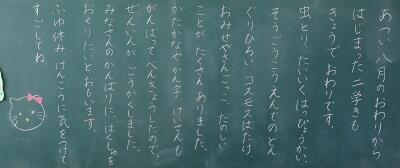 あつい八月のおわりから
はじまった二学きも
きょうでおわりです。
虫とり、たいいくはっぴょうかい、
そうごうこうえんでのどん
ぐりひろい、コスモスばたけ、
おみせやさんごっこ、たのしい
ことがたくさんありました。
かたかなやかん字、けいさんも
がんばってべんきょうしたので、
ぜんいんがごうかくしました。
みなさんのがんばりに、はくしゅを
おくりたいとおもいます。
ふゆ休み、けんこうに気をつけて
すごしてね。